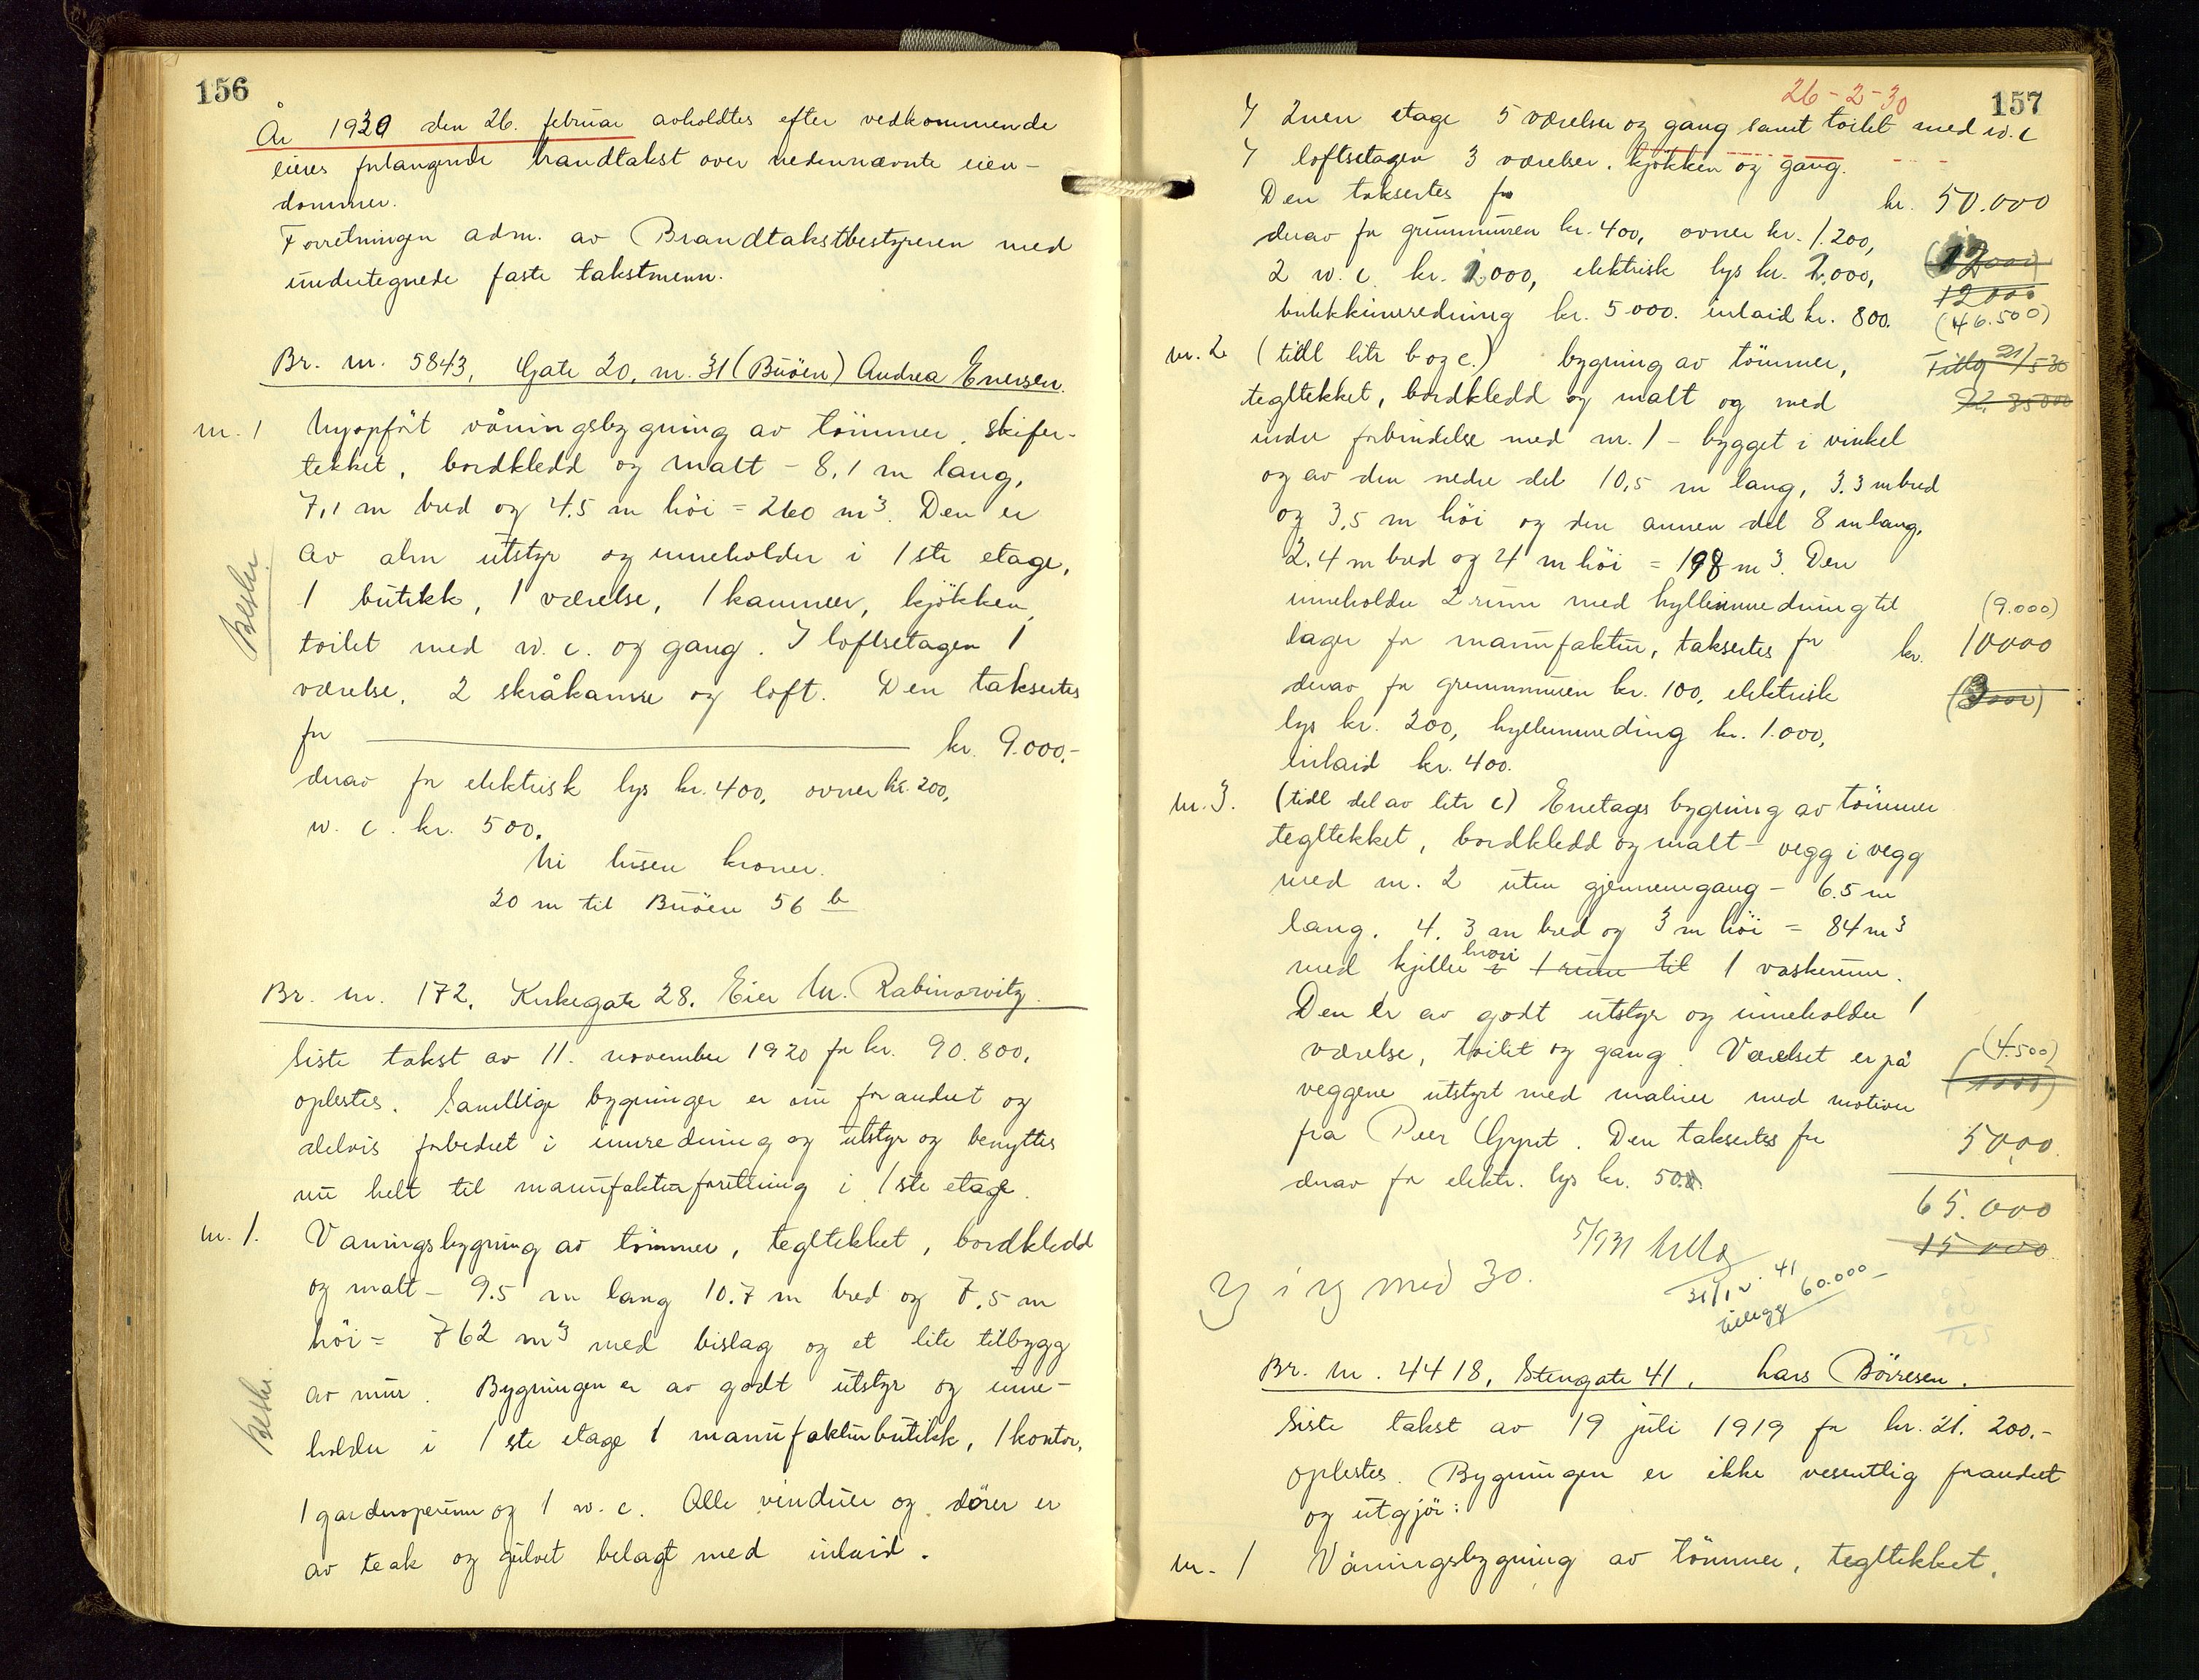 156
År 1930 den 26. februar avholdtes efter vedkommende
eieres forlangende brandtakst over nedennævnte eien-
dommer.
Forretningen adm. av Brandtakstbestyreren med
undertegnede faste takstmenn.
Br. nr. 5843, Gate 20, nr. 31 (Buöen) Andrea Enersen.
nr. 1 Nyopfört våningsbygning av tömmer, skifer-
tekket, bordkledd og malt - 8,1 m lang,
7,1 m bred og 4.5 m höi = 260 m³. Den er
av alm utstyr og inneholder i 1ste etage,
1 butikk, 1 værelse, 1 kammer, kjökken,
toilet med w. c. og gang. I loftsetagen 1
værelse, 2 skråkamre og loft. Den taksertes
for kr. 9.000,-
derav for elektrisk lys kr. 400, ovner kr. 200,
w. c. kr. 500.
Ni tusen kroner.
20 m til Buöen 56 b
Br. nr. 172, Kirkegate 28. Eier M. Rabinowitz.
Siste takst av 11. november 1920 for kr. 90.800,
oplestes. Samtlige bygninger er nu forandret og
delvis forbedret i innredning og utstyr og benyttes
nu helt til manufakturforretning i 1ste etage.
nr. 1. Vaningsbygning av tömmer, tegltekket, bordkledd
og malt - 9.5 m lang 10.7 m bred og 7,5 m
höi = 762 m³ med bislag og et lite tilbygg
av mur. Bygningen er av godt utstyr og inne-
holder i 1ste etage 1 manufakturbutikk, 1 kontor,
1 garderoperum og 1 w. c. Alle vinduer og dörer er
av teak og gulvet belagt med inlaid.
26-2-30
157
I 2nen etage 5 værelser og gang samt toilet med w. c
I loftsetagen 3 værelser, kjökken og gang.
Den taksertes for kr. 50.000
derav for grunnmuren kr. 400, ovner kr. 1.200,
2 w. c. kr. 1.000, elektrisk lys kr. 2.000, (12000)
12000
butikkinnredning kr. 5.000. inlaid kr. 800. (46.500)
nr. 2 (tidl litr b og c.) bygning av tömmer, Tillg 21/5 30
tegltekket, bordkledd og malt og med kr. 35000
indre forbindelse med nr. 1 - bygget i vinkel
og av den nedre del 10,5 m lang, 3.3 m bred
og 3,5 m höi og den annen del 8 m lang,
2,4 m bred og 4 m höi = 198 m³. Den
inneholder 2 rum med hylleinnredning til (9.000)
lager for manufaktur, taksertes for kr. 10000
derav for grunnmuren kr. 100, elektrisk (3000)
lys kr. 200, hylleinnreding kr. 1.000,
inlaid kr. 400.
nr. 3. (tidl del av litr c) Enetages bygning av tömmer
tegltekket, bordkledd og malt - vegg i vegg
med nr. 2 uten gjennemgang - 6.5 m
lang. 4. 3 m bred og 3 m höi = 84 m³
med kjeller i hvori 1 rum til 1 vaskerum.
Den er av godt utstyr og inneholder 1
værelse, toilet og gang. Værelset er på (4.500)
veggene utstyrt med malerier med motiver (1000)
fra Peer Gynt. Den taksertes for 5000.
derav for elektr. lys kr. 50.
65.000
15 000
V i V med 30.
31/1 41
tillegg 60.000-
Br. nr. 4418, Stengate 41, Lars Börresen.
Siste takst av 19 juli 1919 for kr. 21. 200.-
oplestes. Bygningen er ikke vesentlig forandret
og utgjör:
nr. 1 Våningsbygning av tömmer, tegltekket,